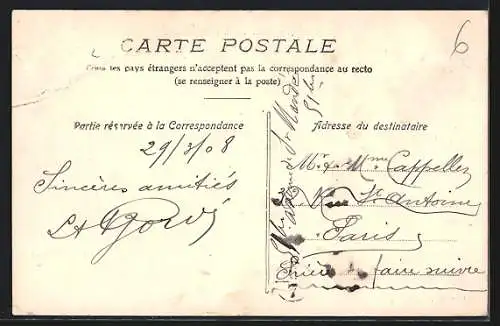 6
CARTE POSTALE
Tous les pays étrangers n'acceptent pas la correspondance au recto
(se renseigner à la poste)
Partie réservée à la Correspondance
29/3/08
Sincères amitiés
Adresse du destinataire
Mr & Mme Cappellez
Rue St Antoine
Paris
Prière de faire suivre
St Mandé